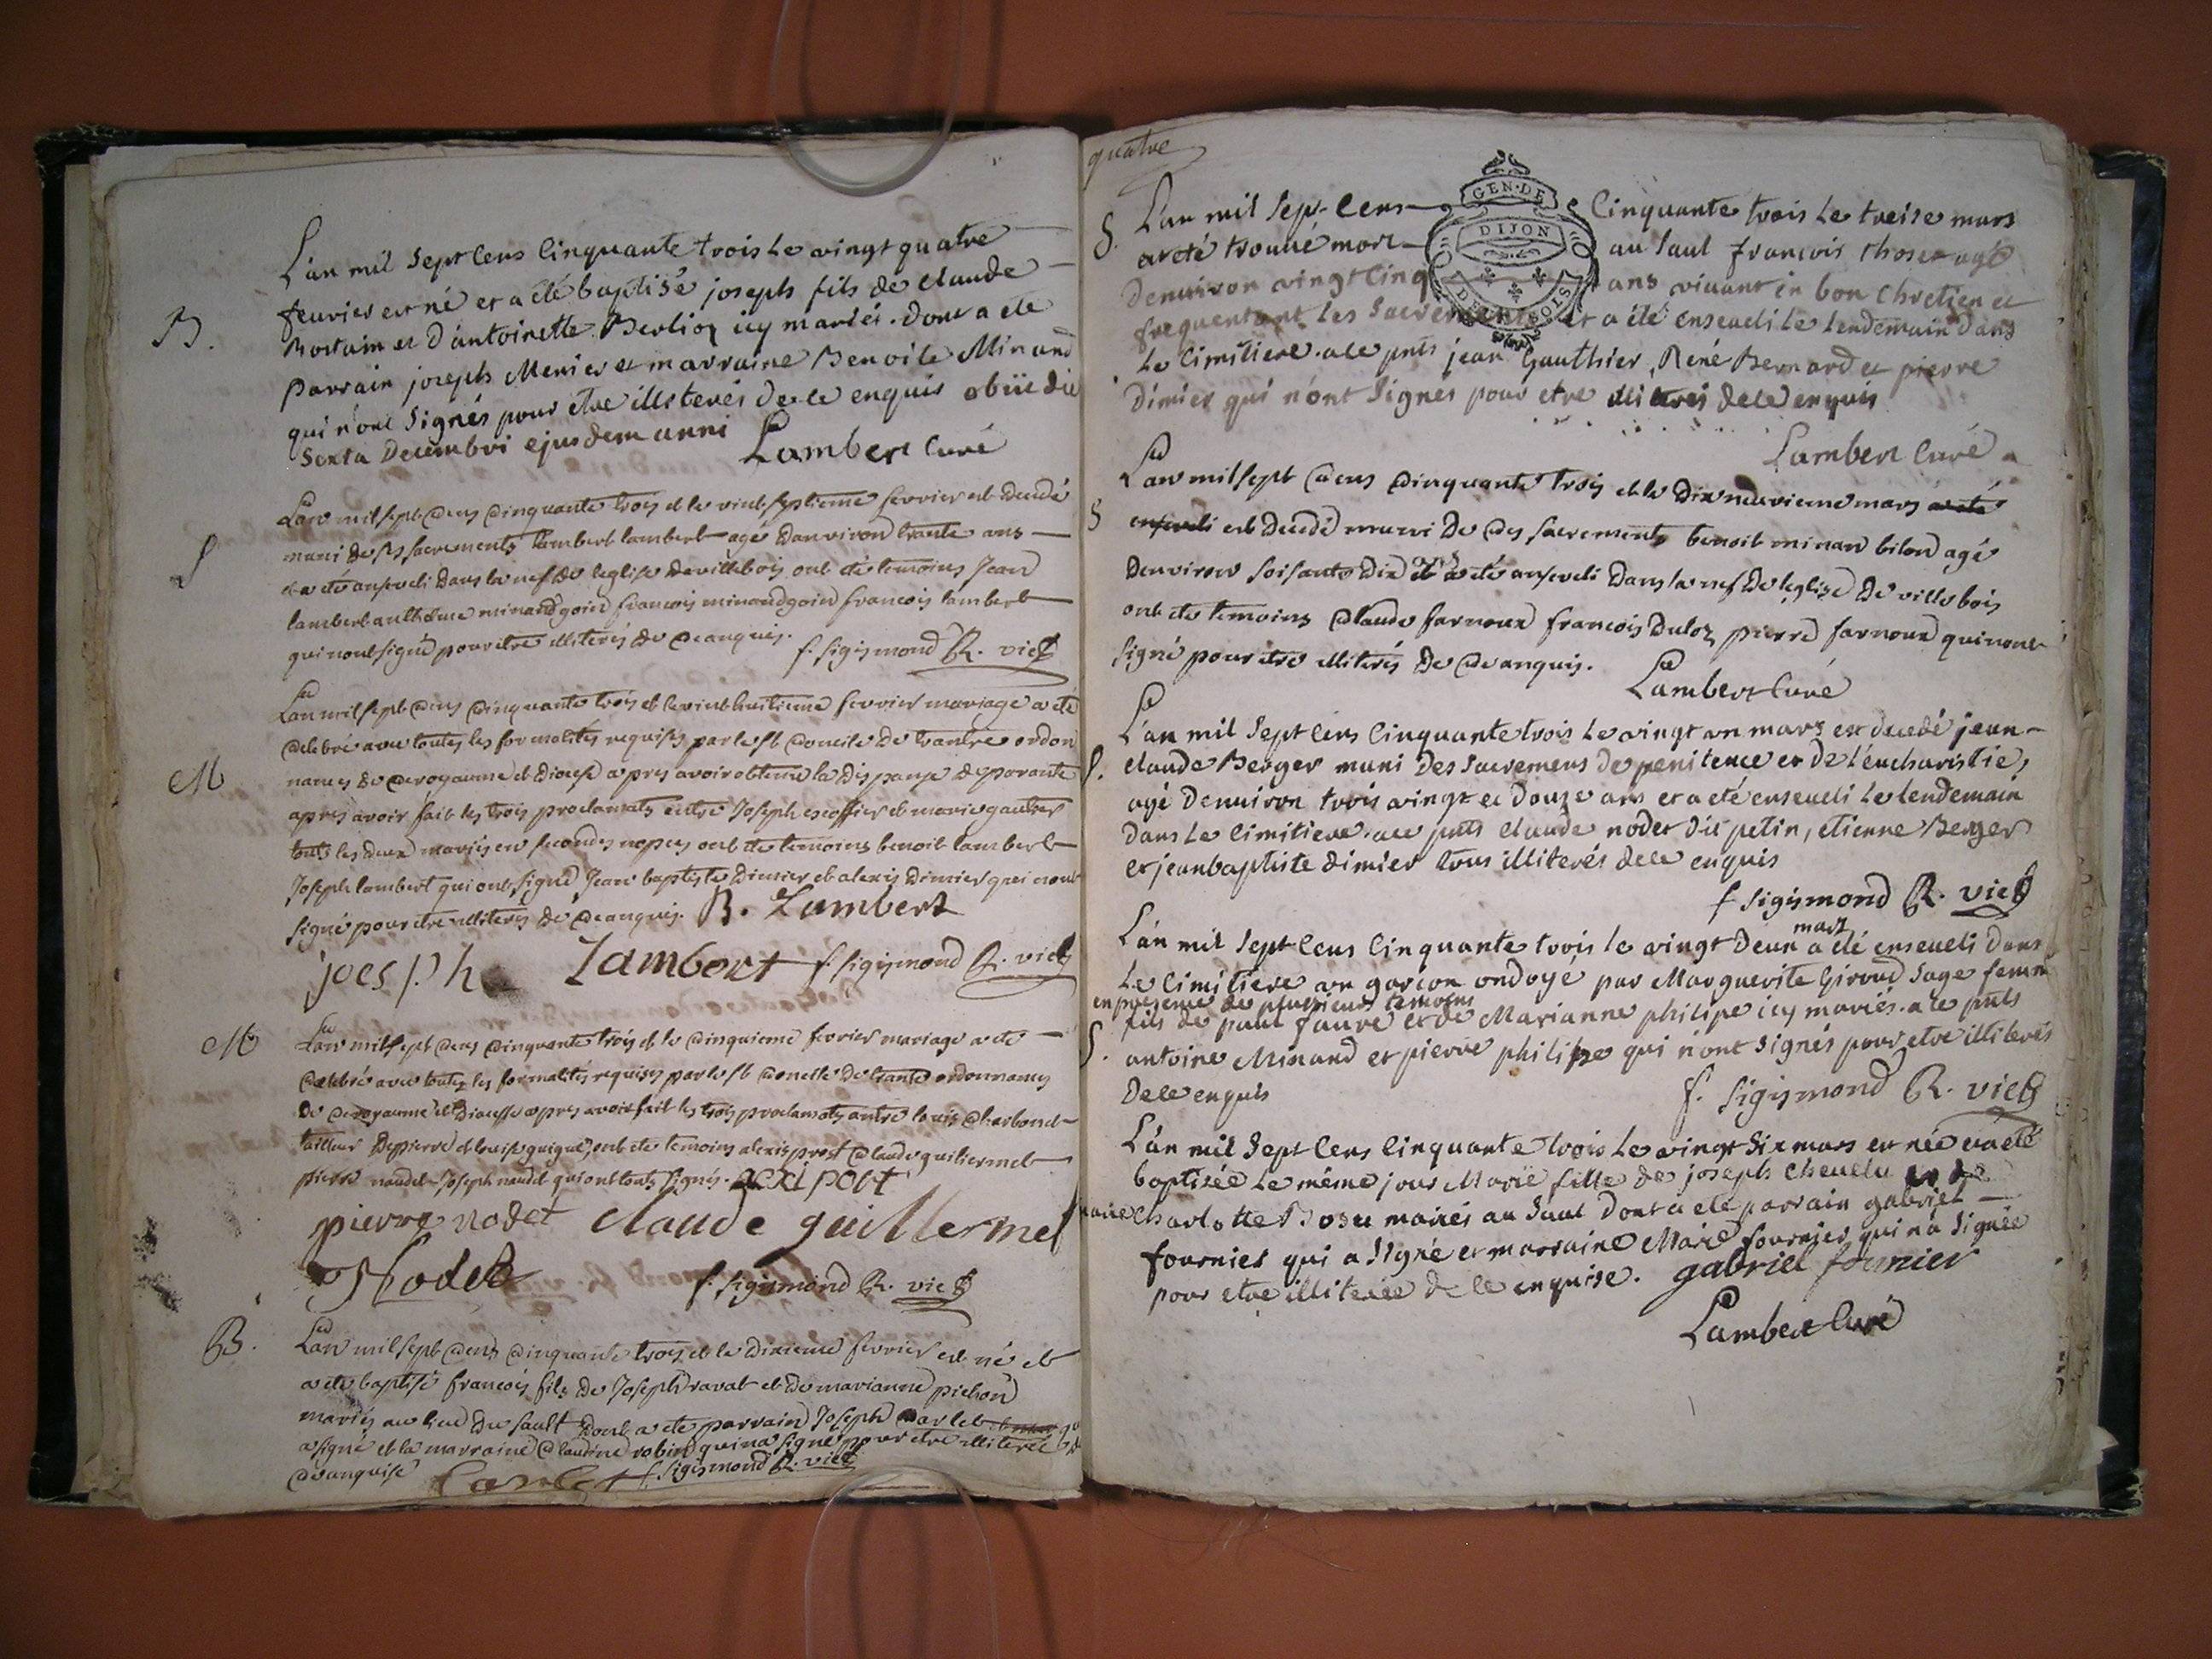 B.
L'an mil sept cens cinquante trois le vingt quatre
feuvrier est né et a été baptisé joseph fils de claude
Rostain et d'antoinette Berlioz icy mariés. dont a été
parrain joseph Menier et marraine Benoite Minand
qui n'ont signés pour etre illiterés de ce enquis obiit die
sexta Decembri ejusdem anni Lambert curé
S
Lan mil sept cens cinquante trois et le vint septieme fevrier est decedé
muni de ses sacrements lambert lambert agé danviron trante ans
et a eté anseveli dans la nef de leglise de villebois ont été temoins Jean
lambert anthelme minand goin francois minand goin francois lambert
qui nont signé pour etre illiterés de ce anquis. f. sigismond R. vic
Lan mil sept cens cinquante trois et le vint huitieme fevrier mariage a eté
celebré avec toutes les formalités requises par le st concile de trante ordon
M
nances de ce royaume et diocese apres avoir obtenu la dispanse de parante
apres avoir fait les trois proclamats entre Joseph escoffier et marie gautier
touts les deux mariés en secondes nopces ont eté temoins benoit lambert
Joseph lambert qui ont signé Jean baptiste Dimier et alexis Dimier qui nont
signé pour etre illiterés de ce anquis. B. Lambert
joesph Lambert f. sigismond R. vic
M
Lan mil sept cens cinquante trois et le cinquieme fevrier mariage a eté
celebré avec toutes les formalités requises par le st concile de trante ordonnances
de ce royaume et diocesse apres avoir fait les trois proclamats antre louis charbonel
tailleur de pierre et louise guigue, ont eté temoins alexis prost claude guiliermet
pierre naudet Joseph naudet qui ont touts signés. acxi post
pierre nodet claude guillermet
Nodet f. sigismond R. vic
B.
Lan mil sept cens cinquante trois et le dixieme fevrier est né et
a eté baptisé francois fils de Joseph ravat et de marianne pichon
mariés au lieu du sault dont a eté parrain Joseph carlet
a signé et la marraine claudine robin qui na signé pour etre illiterée
de ce anquise Carlet f. sigismond R. vic
quatre
S.
L'an mil sept cens cinquante trois le treise mars
a eté trouvé mort au saut francois thoset agé
d'environ vingt cinq ans vivant in bon chretien et
frequentant les sacremens et a été enseveli le lendemain dans
le cimitiere. a ce pnts jean Gauthier, René Bernard et pierre
Dimier qui n'ont signés pour etre illiterés de ce enquis
Lambert curé
GEN. DE
DIJON
S
Lan mil sept cens cinquante trois et le dix neuvieme mars a eté
enseveli est decedé muni de ces sacrements benoit minan bilon agé
denviron soisante dix ans et a eté anseveli dans la nef de leglise de villebois
ont eté temoins claude farnoux francois duloz pierre farnoux qui nont
signé pour etre illiterés de ce anquis. Lambert curé
S.
L'an mil sept cens cinquante trois le vingt un mars est decedé jean-
claude Berger muni des sacremens de penitence et de l'eucharistie,
agé d'environ trois vingt et douze ans et a eté enseveli le lendemain
dans le cimitiere. a ce pnts claude nodet dit petin, etienne Berger
et jean baptiste dimier tous illiterés de ce enquis
f sigismond R. vic
S.
L'an mil sept cens cinquante trois le vingt deux mars a été enseveli dans
le cimitiere un garçon ondoyé par Marguerite Giroud sage femme
en presence de plusieurs temoins
fils de paul faure et de Marianne philipe icy mariés. a ce pnts
antoine Minand et pierre philippe qui n'ont signés pour etre illiterés
de ce enquis f. sigismond R. vic
L'an mil sept cens cinquante trois le vingt six mars est née et a été
baptisée le même jour Marie fille de joseph chevelu et de
charlotte mariés au saut dont a été parrain gabriel
fournier qui a signé et marraine Marie fournier qui n'a signée
pour etre illiterée de ce enquise. gabriel fournier
Lambert curé